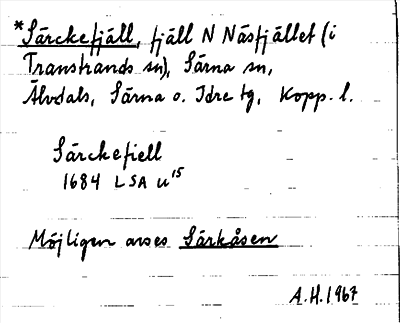 *Särckefjäll, fjäll N Näsfjället (i
Transtrands sn), Särna sn,
Älvdals, Särna o. Idre tg, Kopp. l.
Särckefiell
1684 LSA u15
Möjligen avses Särkåsen
A.H. 1967